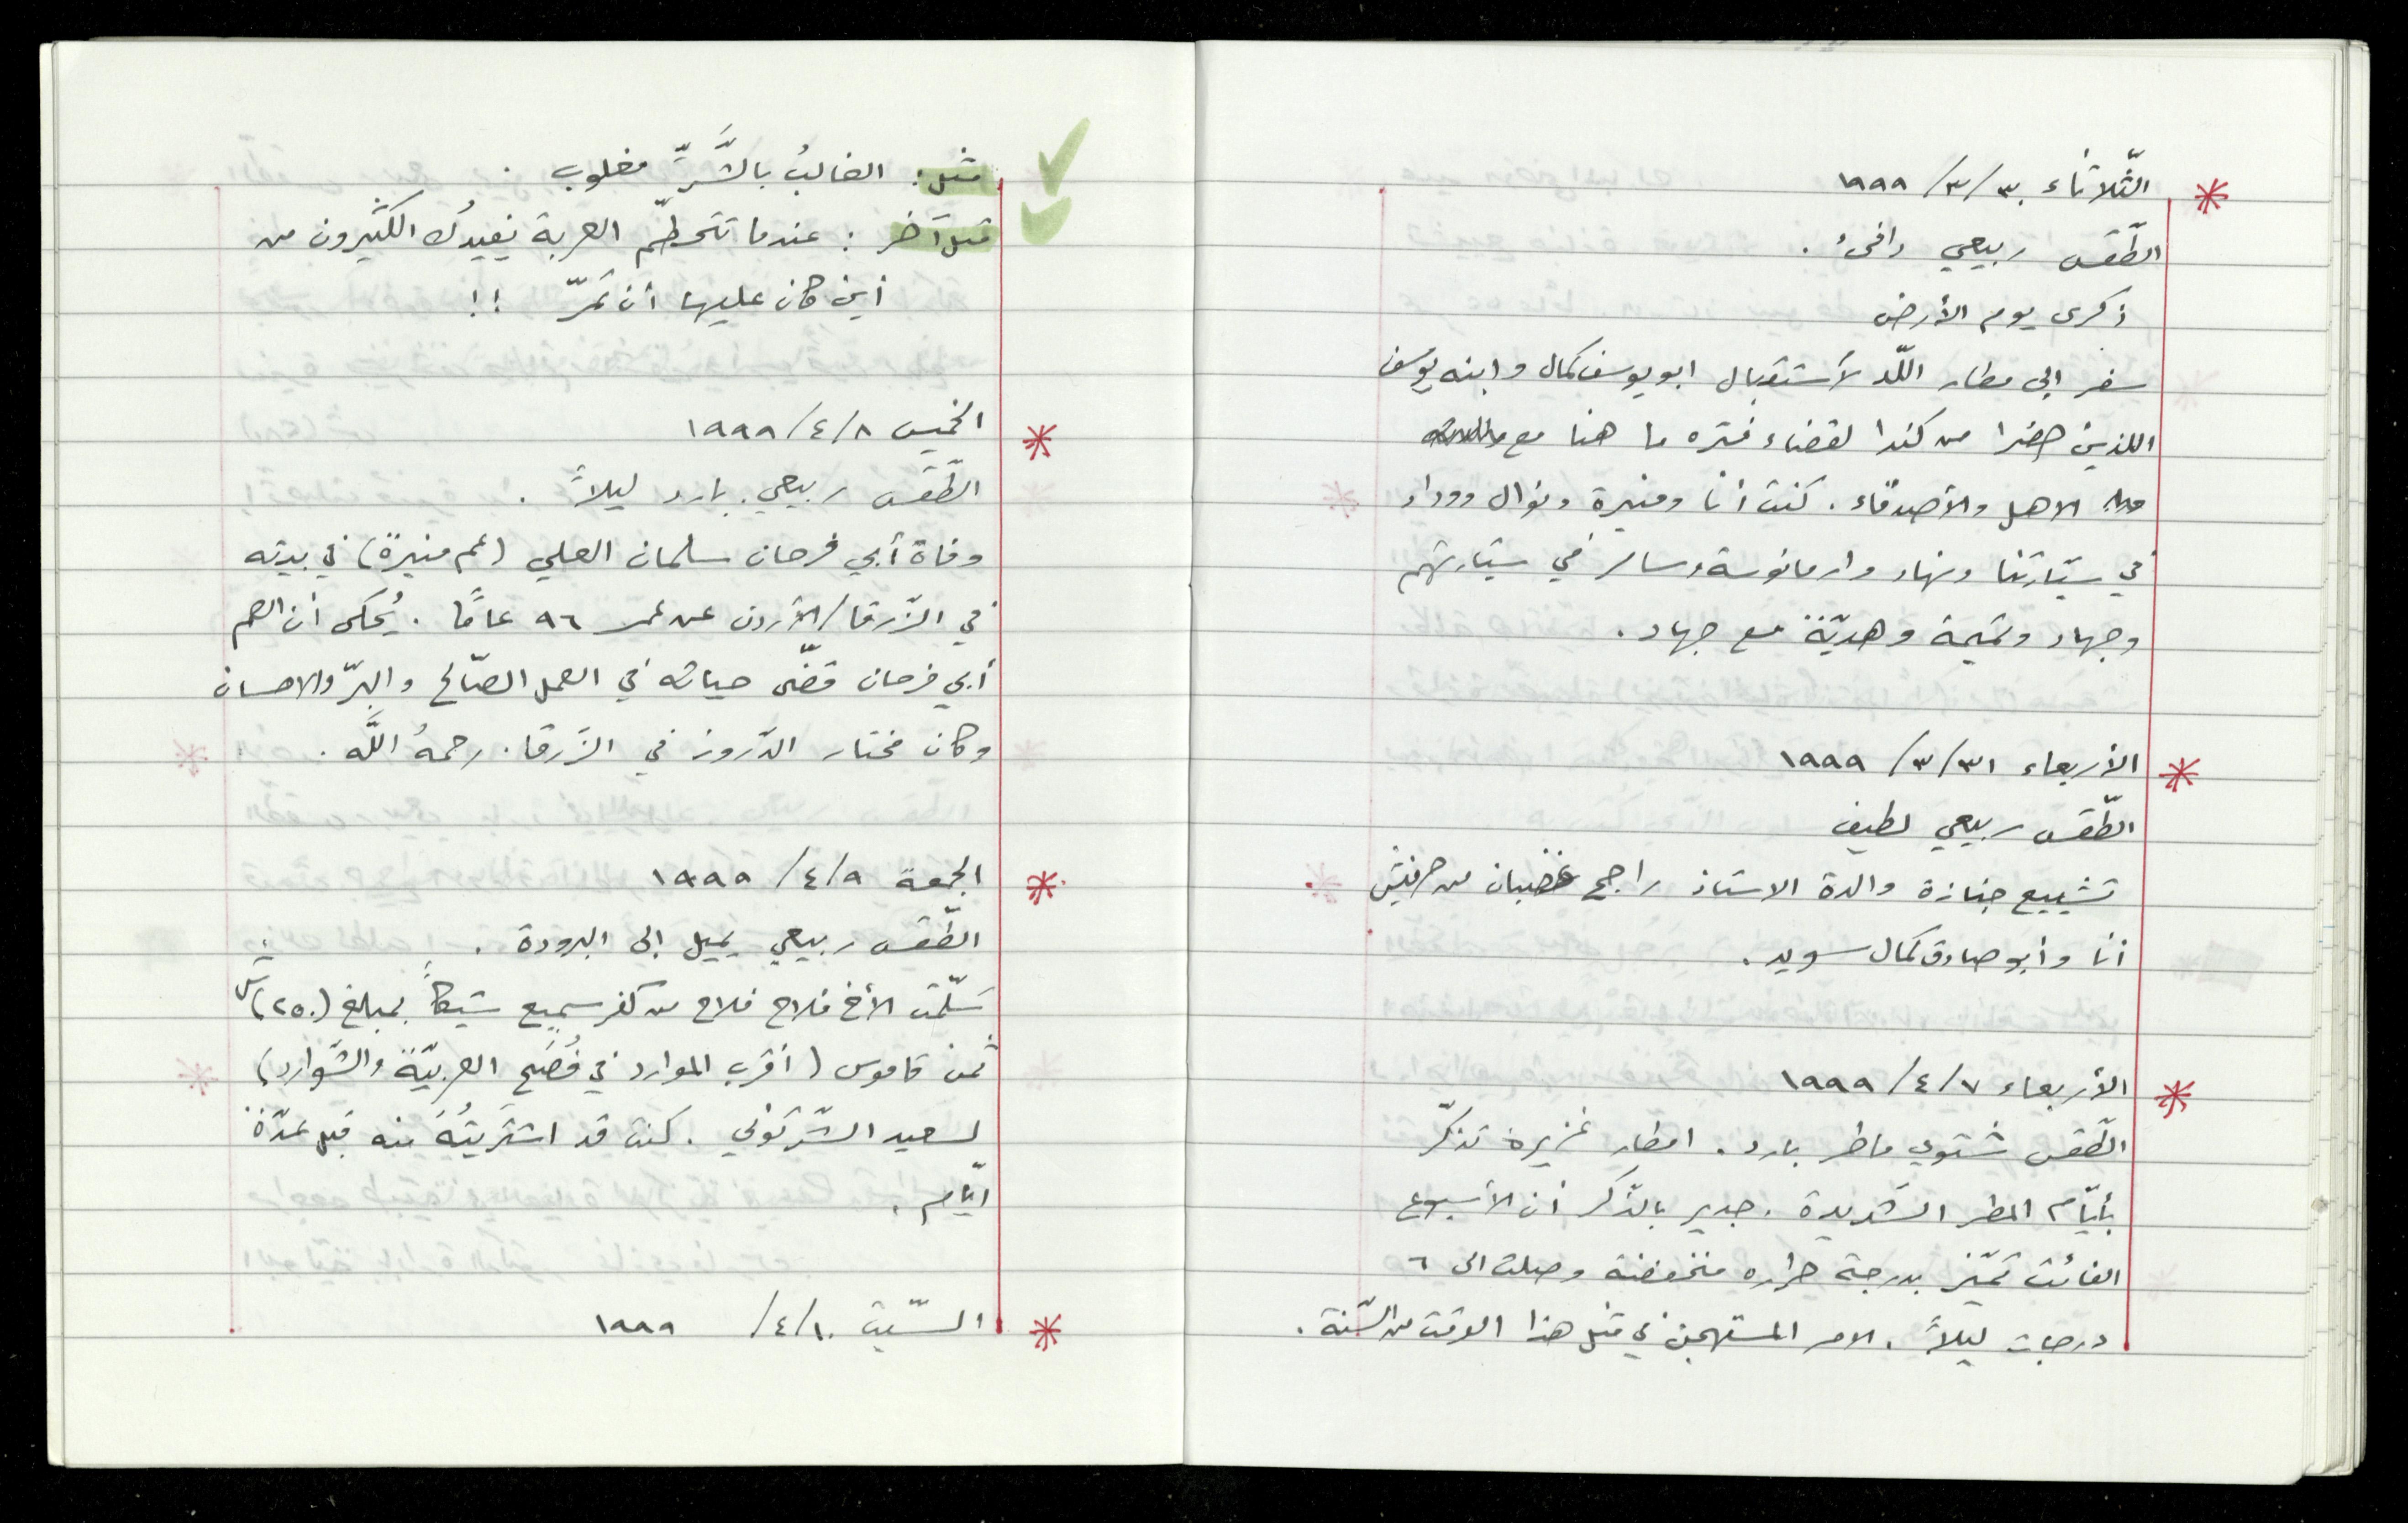 الثّلاثاء ٣٠/٣/١٩٩٩
الطّقس ربيعي دافىء .
ذكرى يوم الأرض
سفر الى مطار اللّد لأستقبال ابو يوسف كمال وابنه يوسف
اللذين حضرا من كندا لقضاء فتره ما هنا مع
الاهل والأصدقاء . كنت أنا ومنيرة ونوال ووداد
في سيّارتنا ونهاد وارمانوسة وسامر في سيّارتهم
وجهاد وتميمة وهديّة مع جهاد .
الأربعاء ٣١/٣/١٩٩٩
الطّقس ربيعي لطيف
تشييع جنازة والدة الاستاذ راجح غضبان من حرفيش
أنا وأبو صادق كمال سويد .
الأربعاء ٧/٤/١٩٩٩
الطّقس شتوي ماطر بارد . امطار غزيرة تذكّر
بأيّام المطر الشّديدة . جدير بالذّكر أن الأسبوع
الفائت تميّز بدرجة حراره منخفضة وصلت الى ٦
درجات ليلاً . الامر المستهجن في مثل هذا الوقت من السّنة .
مثل : الغالبُ بالشَّرِّ مغلوب .
مثل آخر : عندما تتحطّم العربة يفيدُك الكثيرون من
أين كان عليها أن تمرّ !!
الخميس ٨/٤/١٩٩٩
الطّقس ربيعي . بارد ليلاً .
وفاة أبي فرحان سلمان العلي (عم منيرة) في بيته
في الزّرقا/الأردن عن عمر ٩٦ عامًا . يُحكى أن العم
أبي فرحان قضّى حياته في العمل الصّالح والبرّ والاحسان
وكان مختار الدّروز في الزّرقا . رحمهُ اللَّه .
الجمعة ٩/٤/١٩٩٩
الطّقس ربيعي يميل الى البرودة .
سَلّمت الأخ فلاح فلاح من كفر سميع شيكاً بمبلغ (٢٥٠) ش
ثمن قاموس (أقرب الموارد في فُصَح العربيّة والشّوارد)
لسعيد الشّرتوني . كنت قد اشتَريتُهُ منه قبل عدّة
ايّام .
السّبت ١٠/٤/١٩٩٩